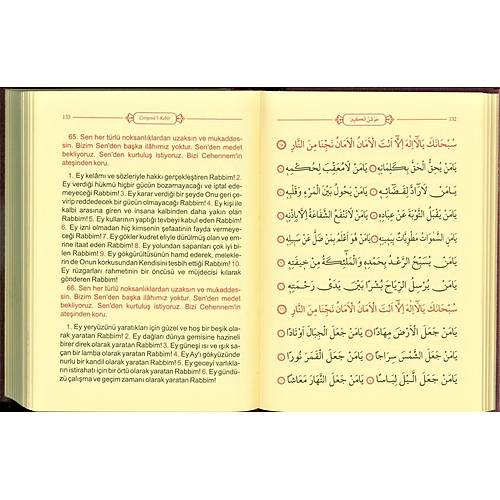 133 Cevşenü'l-Kebîr
65. Sen her türlü noksanlıklardan uzaksın ve mukaddes-
sin. Bizim Sen'den başka ilâhımız yoktur. Sen'den medet
bekliyoruz. Sen'den kurtuluş istiyoruz. Bizi Cehennem'in
ateşinden koru.
1. Ey kelâmı ve sözleriyle hakkı gerçekleştiren Rabbim! 2.
Ey verdiği hükmü hiçbir gücün bozamayacağı ve iptal ede-
meyeceği Rabbim! 3. Ey karar verdiği bir şeyde Onu geri çe-
virip reddedecek bir gücün olmayacağı Rabbim! 4. Ey kişi ile
kalbi arasına giren ve insana kalbinden daha yakın olan
Rabbim! 5. Ey kullarının yaptığı tevbeleri kabul eden Rabbim!
6. Ey izni olmadan hiç kimsenin şefaatinin fayda verme-
yeceği Rabbim! 7. Ey gökler kudret eliyle dürülmüş olan ve em-
rine itaat eden Rabbim! 8. Ey yolundan sapanları çok iyi bi-
len Rabbim! 9. Ey gökgürültüsünün hamd ederek, melekle-
rin de Onun korkusundan Kendisini tesbih ettiği Rabbim! 10.
Ey rüzgarları rahmetinin bir öncüsü ve müjdecisi kılarak
gönderen Rabbim!
66. Sen her türlü noksanlıklardan uzaksın ve mukaddes-
sin. Bizim Sen'den başka ilâhımız yoktur. Sen'den medet
bekliyoruz. Sen'den kurtuluş istiyoruz. Bizi Cehennem'in
ateşinden koru.
1. Ey yeryüzünü yaratıkları için güzel ve hoş bir beşik ola-
rak yaratan Rabbim! 2. Ey dağları dünya gemisine hazineli
birer direk olarak yaratan Rabbim! 3. Ey güneşi ısı ve ışık sa-
çan bir lamba olarak yaratan Rabbim! 4. Ey Ay'ı gökyüzünde
nurlu bir kandil olarak yaratan Rabbim! 5. Ey geceyi varlıkla-
rın istirahatı için bir örtü olarak yaratan Rabbim! 6. Ey gündü-
zü çalışma ve geçim zamanı olarak yaratan Rabbim!
132
سُبْحَانَكَ يَا لَآ اِلٰهَ اِلَّا اَنْتَ الْاَمَانُ الْاَمَانُ نَجِّنَا مِنَ النَّارِ
يَا مَنْ يُحِقُّ الْحَقَّ بِكَلِمَاتِهِ يَا مَنْ لَا مُعَقِّبَ لِحُكْمِهِ
يَا مَنْ لَا رَآدَّ لِقَضَآئِهِ يَا مَنْ يَحُولُ بَيْنَ الْمَرْءِ وَقَلْبِهِ
يَا مَنْ يَقْبَلُ التَّوْبَةَ عَنْ عِبَادِهِ يَا مَنْ لَا تَنْفَعُ الشَّفَاعَةُ اِلَّا بِاِذْنِهِ
يَا مَنِ السَّمٰوَاتُ مَطْوِيَّاتٌ بِيَمِينِهِ يَا مَنْ هُوَ اَعْلَمُ بِمَنْ ضَلَّ عَنْ سَبِيلِهِ
يَا مَنْ يُسَبِّحُ الرَّعْدُ بِحَمْدِهِ وَالْمَلٰٓئِكَةُ مِنْ خِيفَتِهِ
يَا مَنْ يُرْسِلُ الرِّيَاحَ بُشْرًا بَيْنَ يَدَىْ رَحْمَتِهِ
سُبْحَانَكَ يَا لَآ اِلٰهَ اِلَّا اَنْتَ الْاَمَانُ الْاَمَانُ نَجِّنَا مِنَ النَّارِ
يَا مَنْ جَعَلَ الْاَرْضَ مِهَادًا يَا مَنْ جَعَلَ الْجِبَالَ اَوْتَادًا
يَا مَنْ جَعَلَ الشَّمْسَ سِرَاجًا يَا مَنْ جَعَلَ الْقَمَرَ نُورًا
يَا مَنْ جَعَلَ الَّيْلَ لِبَاسًا يَا مَنْ جَعَلَ النَّهَارَ مَعَاشًا